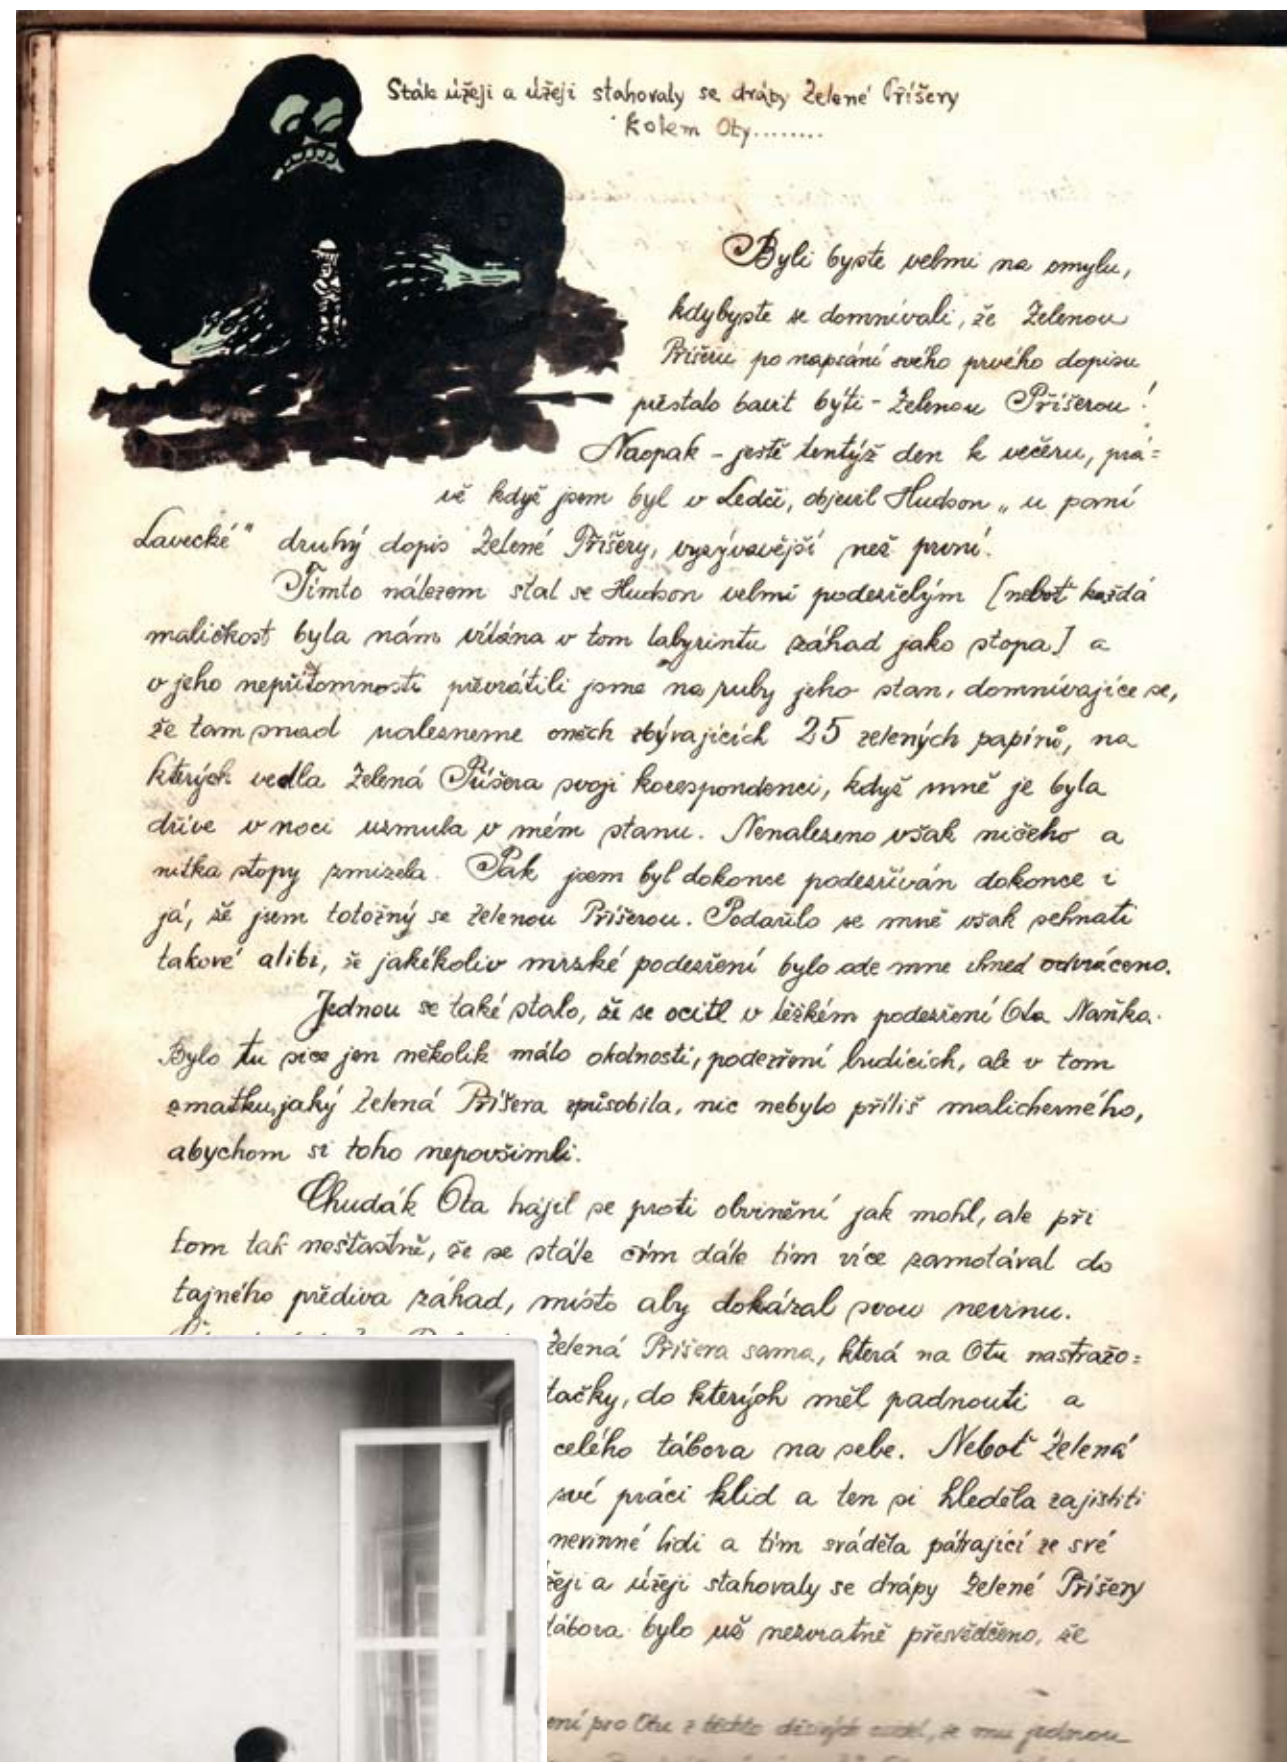 Stále úžeji a úžeji stahovaly se drápy Zelené Příšery
kolem Oty........
Byli byste velmi na omylu,
kdybyste se domnívali, že Zelenou
Příšeru po napsání svého prvého dopisu
přestalo bavit býti - Zelenou Příšerou!
Naopak - ještě tentýž den k večeru, prá=
vě když jsem byl v Ledči, objevil Hudson „u paní
Lavecké" druhý dopis Zelené Příšery, vyzývavější než první.
Tímto nálezem stal se Hudson velmi podezřelým [neboť každá
maličkost byla nám vítána v tom labyrintu záhad jako stopa] a
v jeho nepřítomnosti převrátili jsme na ruby jeho stan, domnívajíce se,
že tam snad nalezneme oněch zbývajících 25 zelených papírů, na
kterých vedla Zelená Příšera svoji korespondenci, když mně je byla
dříve v noci uzmula v mém stanu. Nenalezeno však ničeho a
nitka stopy zmizela. Pak jsem byl dokonce podezříván dokonce i
já, že jsem totožný se Zelenou Příšerou. Podařilo se mně však sehnati
takové alibi, že jakékoliv mrzké podezření bylo ode mne ihned odvráceno.
Jednou se také stalo, že se ocitl v těžkém podezření Ota Naňka.
Bylo tu sice jen několik málo okolností, podezření budících, ale v tom
zmatku, jaký Zelená Příšera způsobila, nic nebylo příliš malicherného,
abychom si toho nepovšimli.
Chudák Ota hájil se proti obvinění jak mohl, ale při
tom tak nešťastně, že se stále čím dále tím více zamotával do
tajného přediva záhad, místo aby dokázal svou nevinu.
Zelená Příšera sama, která na Otu nastražo=
tačky, do kterých měl padnouti a
celého tábora na sebe. Neboť Zelená
své práci klid a ten si hleděla zajistiti
nevinné lidi a tím sváděla pátrající ze své
žeji a úžeji stahovaly se drápy Zelené Příšery
tábora bylo už nezvratně přesvědčeno, že
ení pro Otu z těchto, že mu jednou